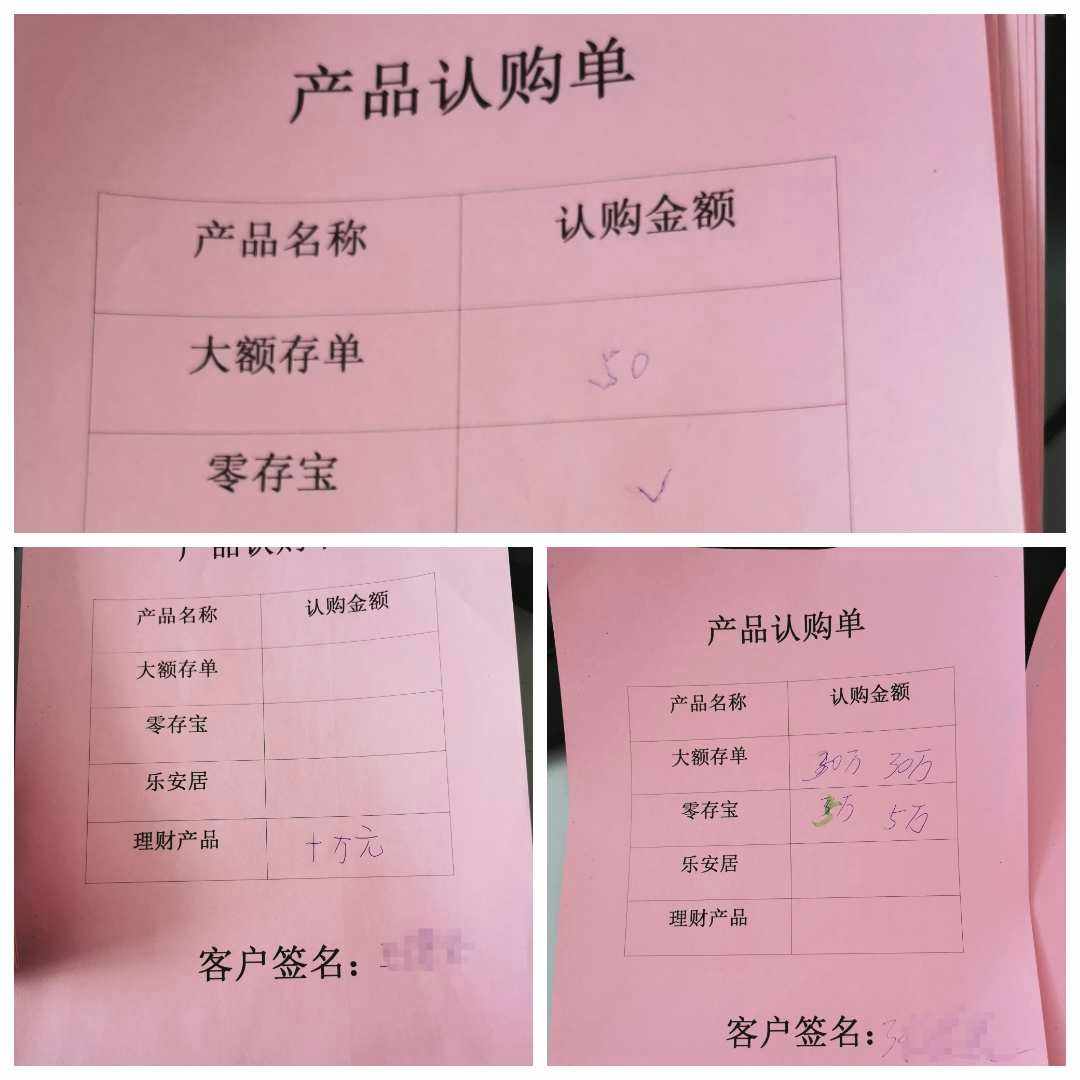 产品认购单
产品名称 认购金额
大额存单 50
零存宝 ✓
产品认购单
产品名称 认购金额
大额存单
零存宝
乐安居
理财产品 十万元
客户签名：
产品认购单
产品名称 认购金额
大额存单 30万 30万
零存宝 5万 5万
乐安居
理财产品
客户签名：